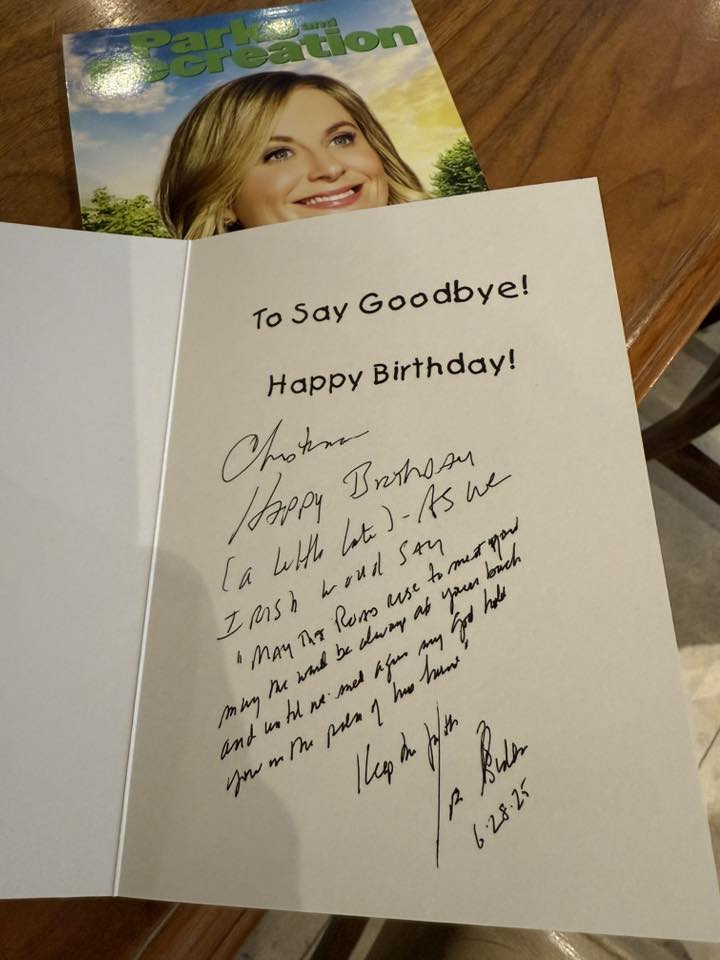 Parks and
Recreation
To Say Goodbye!
Happy Birthday!
Happy Birthday
(a little late) - As we
Irish would say
"May the Road rise to meet you
may the wind be always at your back
and until we meet again may God hold
you in the palm of his hand"
Keep the faith
Joe Biden
6.28.25